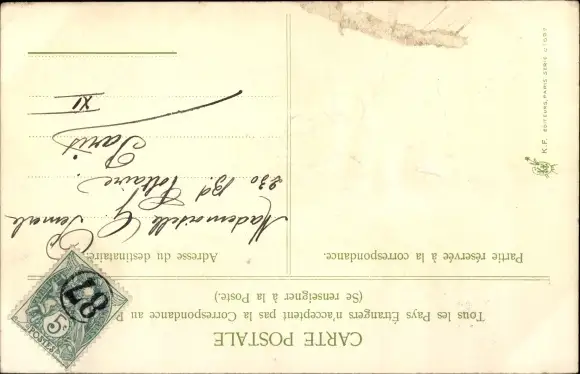 CARTE POSTALE
Tous les Pays Étrangers n'acceptent pas la Correspondance au
(Se renseigner à la Poste.)
Partie réservée à la correspondance.
Adresse du destinataire.
Mademoiselle G.
230 Bd. Voltaire.
Paris
XI
K.F. EDITEURS, PARIS SERIE
5c
87